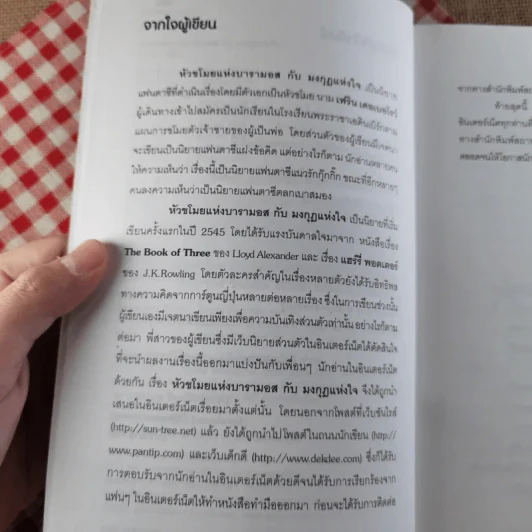 จากใจผู้เขียน
หัวขโมยแห่งบารามอส กับ มงกุฎแห่งใจ เป็นนิยาย
แฟนตาซีที่ดำเนินเรื่องโดยมีตัวเอกเป็นหัวขโมย นาม เฟริน เดอเบอโรว์
ผู้เดินทางเข้าไปสมัครเป็นนักเรียนในโรงเรียนพระราชาเอดินเบิร์กตาม
แผนการขโมยตัวเจ้าชายของผู้เป็นพ่อ โดยส่วนตัวของผู้เขียนมีเจตนา
จะเขียนเป็นนิยายแฟนตาซีแฝงข้อคิด แต่อย่างไรก็ตาม นักอ่านหลายคน
ให้ความเห็นว่า เรื่องนี้เป็นนิยายแฟนตาซีแนวรักกุ๊กกิ๊ก ขณะที่อีกหลายๆ
คนลงความเห็นว่าเป็นนิยายแฟนตาซีตลกเบาสมอง
หัวขโมยแห่งบารามอส กับ มงกุฎแห่งใจ เป็นนิยายที่เริ่ม
เขียนครั้งแรกในปี 2545 โดยได้รับแรงบันดาลใจมาจาก หนังสือเรื่อง
The Book of Three ของ Lloyd Alexander และ เรื่อง แฮร์รี่ พอตเตอร์
ของ J.K.Rowling โดยตัวละครสำคัญในเรื่องหลายตัวยังได้รับอิทธิพล
ทางความคิดจากการ์ตูนญี่ปุ่นหลายต่อหลายเรื่อง ซึ่งในการเขียนช่วงนั้น
ผู้เขียนเองมีเจตนาเขียนเพียงเพื่อความบันเทิงส่วนตัวเท่านั้น อย่างไรก็ตาม
ต่อมา พี่สาวของผู้เขียนซึ่งมีเว็บนิยายส่วนตัวในอินเตอร์เน็ตได้ตัดสินใจ
ที่จะนำผลงานเรื่องนี้ออกมาแบ่งปันกับเพื่อนๆ นักอ่านในอินเตอร์เน็ต
ด้วยกัน เรื่อง หัวขโมยแห่งบารามอส กับ มงกุฎแห่งใจ จึงได้ถูกนำ
เสนอในอินเตอร์เน็ตเรื่อยมาตั้งแต่นั้น โดยนอกจากโพสต์ที่เว็บซันไทส์
(http://sun-tree.net) แล้ว ยังได้ถูกนำไปโพสต์ในถนนนักเขียน (http://
www.pantip.com) และเว็บเด็กดี (http://www.dekdee.com) ซึ่งก็ได้รับ
การตอบรับจากนักอ่านในอินเตอร์เน็ตด้วยดีจนได้รับการเรียกร้องจาก
แฟนๆ ในอินเตอร์เน็ตให้ทำหนังสือทำมือออกมา ก่อนจะได้รับการติดต่อ
จากทางสำนักพิมพ์
ท้ายสุดนี้
อินเตอร์เน็ตทุกท่านที่
ทางสำนักพิมพ์สถา
ตลอดจนให้โอกาสนัก